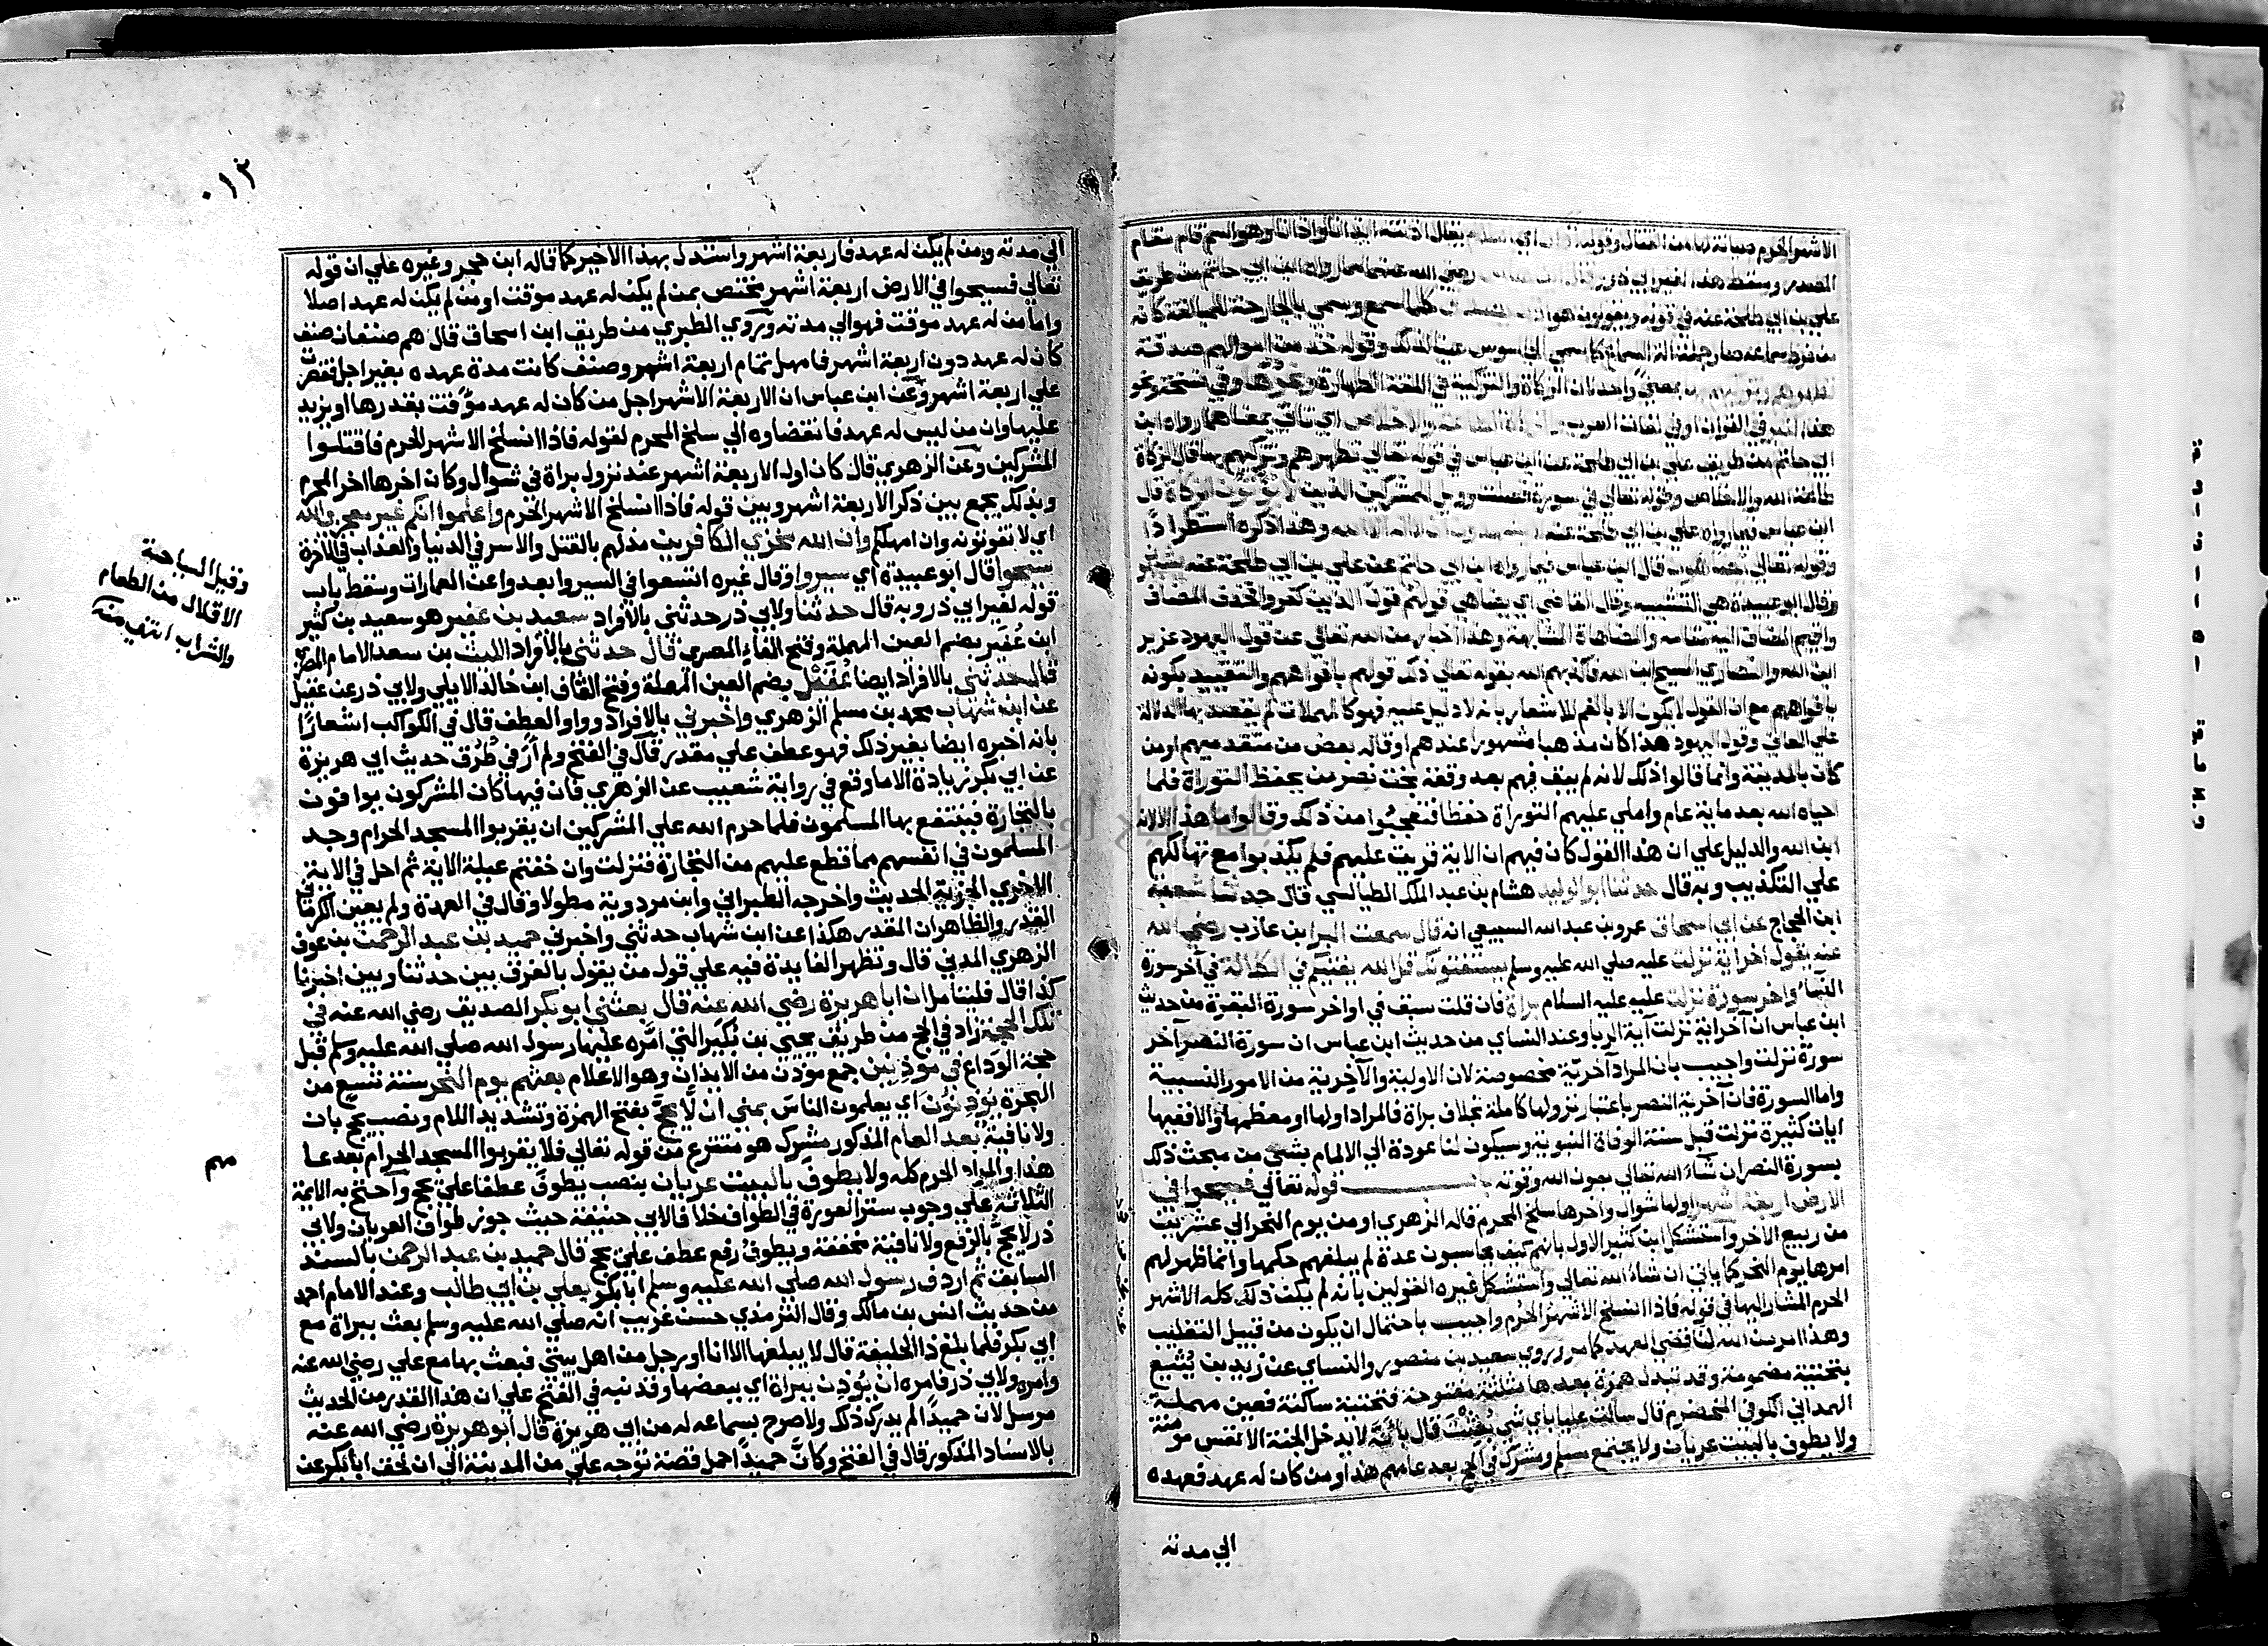 الاشهر الحرم صيانة لها من القتال وقوله اذان اي اعلام يقال اذنته ايذانا واذانا وهو اسم قام مقام
المصدر وسقط هذا لغير ابي ذر وقال ابن عباس رضي الله عنهما مما رواه ابن ابي حاتم من طريق
علي بن ابي طلحة عنه في قوله ويقولون هو اذن يصدق كلما سمع وسمي بالجارحة للمبالغة كانه
من فرط سماعه صار جملته الة السماع كما سمي الجاسوس عينا لذلك وقوله خذ من اموالهم صدقة
تطهرهم وتزكيهم بها معني واحد لان الزكاة والتزكية في اللغة الطهارة وفي نسخة ونحو
هذا كثير في القران او في لغات العرب والزكاة الطاعة والاخلاص اي تاتي بمعناهما رواه ابن
ابي حاتم من طريق علي بن ابي طلحة عن ابن عباس في قوله تعالي تطهرهم وتزكيهم بها قال الزكاة
طاعة الله والاخلاص وقوله تعالي في سورة فصلت وويل للمشركين الذين لا يوتون الزكاة قال
ابن عباس فيما رواه علي بن ابي طلحة عنه لا يشهدون ان لا اله الا الله وهذا ذكره استطرادا
وقوله تعالي يضاهون قال ابن عباس فيما رواه ابن ابي حاتم عن علي بن ابي طلحة عنه يشبهون
وقال ابو عبيدة هي التشبيه وقال القاضي اي يضاهي قولهم قول الذين كفروا فحذف المضاف
واقيم المضاف اليه مقامه والمضاهاة المشابهة وهذا اخبار من الله تعالي عن قول اليهود عزير
ابن الله والنصاري المسيح ابن الله فاكذبهم الله بقوله تعالي ذلك قولهم بافواههم والتقييد بكونه
بافواههم مع ان القول لا يكون الا بالفم للاشعار بانه لا دليل عليه فهو كالمهملات لم يقصد بها الدلالة
علي المعاني وقول اليهود هذا كان مذهبا مشهورا عندهم او قاله بعض من متقدميهم او من
كان بالمدينة وانما قالوا ذلك لانه لم يبق فيهم بعد وقعة بخت نصر من يحفظ التوراة فلما
احياه الله بعد ماية عام واملي عليهم التوراة حفظا فتعجبوا من ذلك وقالوا ما هذا الا لانه
ابن الله والدليل علي ان هذا القول كان فيهم ان الاية قريت عليهم فلم يكذبوا مع تهالكهم
علي التكذيب وبه قال حدثنا ابو الوليد هشام بن عبد الملك الطيالسي قال حدثنا شعبة
ابن الحجاج عن ابي اسحاق عمرو بن عبد الله السبيعي انه قال سمعت البرا بن عازب رضي الله
عنه يقول اخر اية نزلت عليه صلي الله عليه وسلم يستفتونك قل الله يفتيكم في الكلالة في آخر سورة
النسآء واخر سورة نزلت عليه عليه السلام براة فان قلت سبق في اواخر سورة البقرة من حديث
ابن عباس ان آخر اية نزلت آية الربا وعند النساي من حديث ابن عباس ان سورة النصر آخر
سورة نزلت واجيب بان المراد آخرية مخصوصة لان الاولية والآخرية من الامور النسبية
واما السورة فان آخرية النصر باعتبار نزولها كاملة بخلاف براة فالمراد اولها او معظمها والا ففيها
ايات كثيرة نزلت قبل سنة الوفاة النبوية وسيكون لنا عودة الي الالمام بشي من مبحث ذلك
بسورة النصر ان شاء الله تعالي بعون الله وقوته قوله تعالي فسيحوا في
الارض اربعة اشهر اولها شوال واخرها سلخ المحرم قاله الزهري او من يوم النحر الي عشر
من ربيع الاخر واستشكل ابن كثير الاول بانهم كيف يحاسبون عدة لم يبلغهم حكمها وانما ظهر لهم
امرها يوم النحر كما ياتي ان شاء الله تعالي واستشكل غيره القولين بانه لم يكن ذلك كله الاشهر
الحرم المشار اليها في قوله فاذا انسلخ الاشهر الحرم واجيب باحتمال ان يكون من قبيل التغليب
وهذا امر من الله لناقضي العهد كما مر وروي سعيد بن منصور والنساي عن زيد بن يثيع
بتحتية مضمومة وقد تبدل همزة بعدها مثلثة مفتوحة فتحتية ساكنة فعين مهملة
الهمداني الكوفي المخضرم قال سالت عليا باي شي بعثت قال بانه لا يدخل الجنة الا نفس مومنة
ولا يطوف بالبيت عريان ولا يجتمع مسلم ومشرك في الحج بعد عامهم هذا ومن كان له عهد فعهده
الي مدته
٠١٢
الي مدته ومن لم يكن له عهد فاربعة اشهر واستدل بهذا الاخير كما قاله ابن حجر وغيره علي ان قوله
تعالي فسيحوا في الارض اربعة اشهر يختص بمن لم يكن له عهد موقت او من لم يكن له عهد اصلا
واما من له عهد موقت فهو الي مدته وروي الطبري من طريق ابن اسحاق قال هم صنفان صنف
كان له عهد دون اربعة اشهر فامهل تمام اربعة اشهر وصنف كانت مدة عهده بغير اجل فقصرت
علي اربعة اشهر وعن ابن عباس ان الاربعة الاشهر اجل من كان له عهد موقت بقدرها او يزيد
عليها وان من ليس له عهد فانقضاوه الي سلخ المحرم لقوله فاذا انسلخ الاشهر الحرم فاقتلوا
المشركين وعن الزهري قال كان اول الاربعة اشهر عند نزول براة في شوال وكان اخرها اخر المحرم
وبذلك يجمع بين ذكر الاربعة اشهر وبين قوله فاذا انسلخ الاشهر الحرم واعلموا انكم غير معجزي الله
اي لا تفوتونه وان امهلكم وان الله مخزي الكافرين مذلهم بالقتل والاسر في الدنيا والعذاب في الاخرة
سيحوا قال ابو عبيدة اي سيروا وقال غيره اتسعوا في السير وابعدوا عن العمارات وسقط باب
قوله لغير ابي ذر وبه قال حدثنا ولابي ذر حدثني بالافراد سعيد بن عفير هو سعيد بن كثير
ابن عُفَير بضم العين المهملة وفتح الفاء المصري قال حدثني بالافراد الليث بن سعد الامام المصري
قال حدثني بالافراد ايضا عُقَيل بضم العين المهملة وفتح القاف ابن خالد الايلي ولابي ذر عن عقيل
عن ابن شهاب محمد بن مسلم الزهري واخبرني بالافراد وواو العطف قال في الكواكب اشعارًا
بانه اخبره ايضا بغير ذلك فهو عطف علي مقدر قال في الفتح ولم أرَ في طُرق حديث ابي هريرة
عن ابي بكر زيادة الا ما وقع في رواية شعيب عن الزهري فان فيها كان المشركون يوافون
بالتجارة فينتفع بها المسلمون فلما حرم الله علي المشركين ان يقربوا المسجد الحرام وجد
المسلمون في انفسهم مما قطع عليهم من التجارة فنزلت وان خفتم عيلة الاية ثم احل في الاية
الاخري الجزية الحديث واخرجه الطبراني وابن مردوية مطولا وقال في العمدة ولم يعين الكرماني
المقدر والظاهر ان المقدر هكذا عن ابن شهاب حدثني واخبرني حميد بن عبد الرحمن بن عوف
الزهري المدني قال وتظهر الفايدة فيه علي قول من يقول بالفرق بين حدثنا وبين اخبرنا
كذا قال فليتامل ان ابا هريرة رضي الله عنه قال بعثني ابو بكر الصديق رضي الله عنه في
تلك الحجة زاد في الحج من طريق يحيي بن بُكَير التي امَّره عليها رسول الله صلي الله عليه وسلم قبل
حجة الوداع في موذنين جمع موذن من الايذان وهو الاعلام بعثهم يوم النحر سنة تسع من
الهجرة يؤذنون اي يعلمون الناسَ بمني ان لَّا يحجَّ بفتح الهمزة وتشديد اللام ونصب يحج بان
ولا نافية بعد العام المذكور مشرك هو منتزع من قوله تعالي فلا يقربوا المسجد الحرام بعد عا
هذا والمراد الحرم كله ولا يطوفَ بالبيت عريان بنصب يطوف عطفا علي يحج وآحتج به الايمة
الثلاثة علي وجوب ستر العورة في الطواف خلافا لابي حنيفة حيث جوز طواف العريان ولابي
ذر لا يحجُّ بالرفع ولا نافية مخففة ويطوف رفع عطف علي يحج قال حميد بن عبد الرحمن بالسند
السابق ثم اردف رسول الله صلي الله عليه وسلم ابا بكر بعلي بن ابي طالب وعند الامام احمد
من حديث انس بن مالك وقال الترمذي حسن غريب انه صلي الله عليه وسلم بعث ببراة مع
ابي بكر فلما بلغ ذا الحليفة قال لا يبلغها الا انا او رجل من اهل بيتي فبعث بها مع علي رضي الله عنه
وامره ولابي ذر فامره ان يؤذن ببراة اي ببعضها وقد نبه في الفتح علي ان هذا القدر من الحديث
مرسل لان حميدًا لم يدرك ذلك ولا صرح بسماعه له من ابي هريرة قال ابو هريرة رضي الله عنه
بالاسناد المذكور قال في الفتح وكانَّ حميدًا حمل قصة توجه علي من المدينة الي ان لحق ابا بكر عن
وقيل السياحة
الاقلال من الطعام
والشراب انتهي منه
مهم